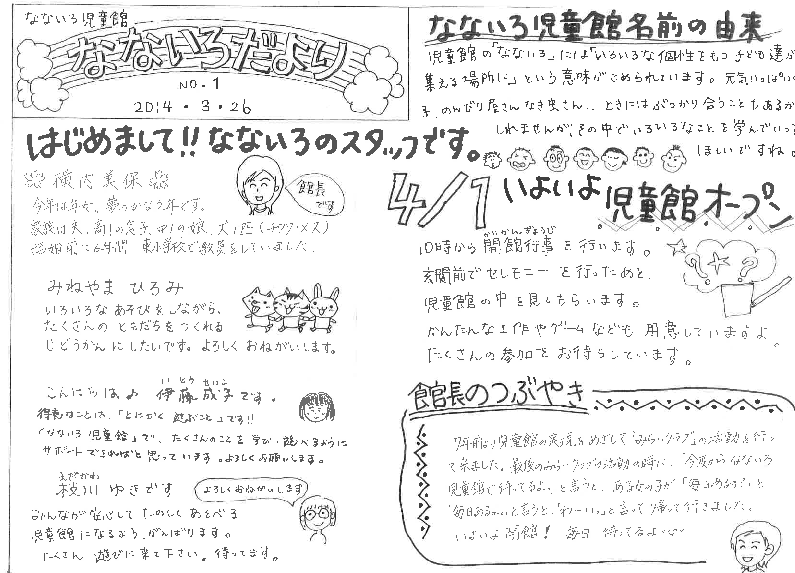 なないろ児童館
なないろだより
NO.1
2014・3・26
はじめまして!!なないろのスタッフです。
美保
館長
です
今年は年女、夢つかむ年です。
みねやま ひろみ
いろいろな あそびを しながら、
たくさんの ともだちを つくれる
じどうかんに したいです。よろしく おねがいします。
こんにちは 伊藤 成子です。
いとう せいこ
得意なことは、「とにかく 遊ぶこと」です!!
「なないろ児童館」で、たくさんのことを 学び・遊べるように
サポートできればと思っています。よろしくお願いします。
えだがわ
枝川 ゆきです
よろしくおねがいします
みんなが安心して たのしく あそべる
児童館になるよう、がんばります。
たくさん 遊びに来て下さい。待ってます。
なないろ児童館名前の由来
児童館の「なないろ」には「いろいろな個性をもつ子ども達が
集える場所に」という意味がこめられています。元気いっぱい
子、のんびり屋さん なき虫さん‥ときにはぶつかり合うこともあるか
しれませんが、その中でいろいろなことを学んでいって
ほしいですね。
4/1 いよいよ 児童館オープン
かいかんぎょうじ
10時から 開館行事 を 行います。
玄関前で セレモニー を行ったあと、
児童館の中を見てもらいます。
かんたんな工作やゲームなども 用意していますよ。
たくさんの参加をお待ちしています。
館長のつぶやき
7年前より児童館の実現をめざして「みらいクラブ」の活動を行っ
て来ました。最後のみらいクラブの活動の時に、「今度からなないろ
児童館で待ってるよ。」と言うと、ある女の子が「毎日あるの?」と
「毎日あるよ。」と言うと、「わーい。」と言って帰って行きました。
いよいよ開館! 毎日 待ってるよ